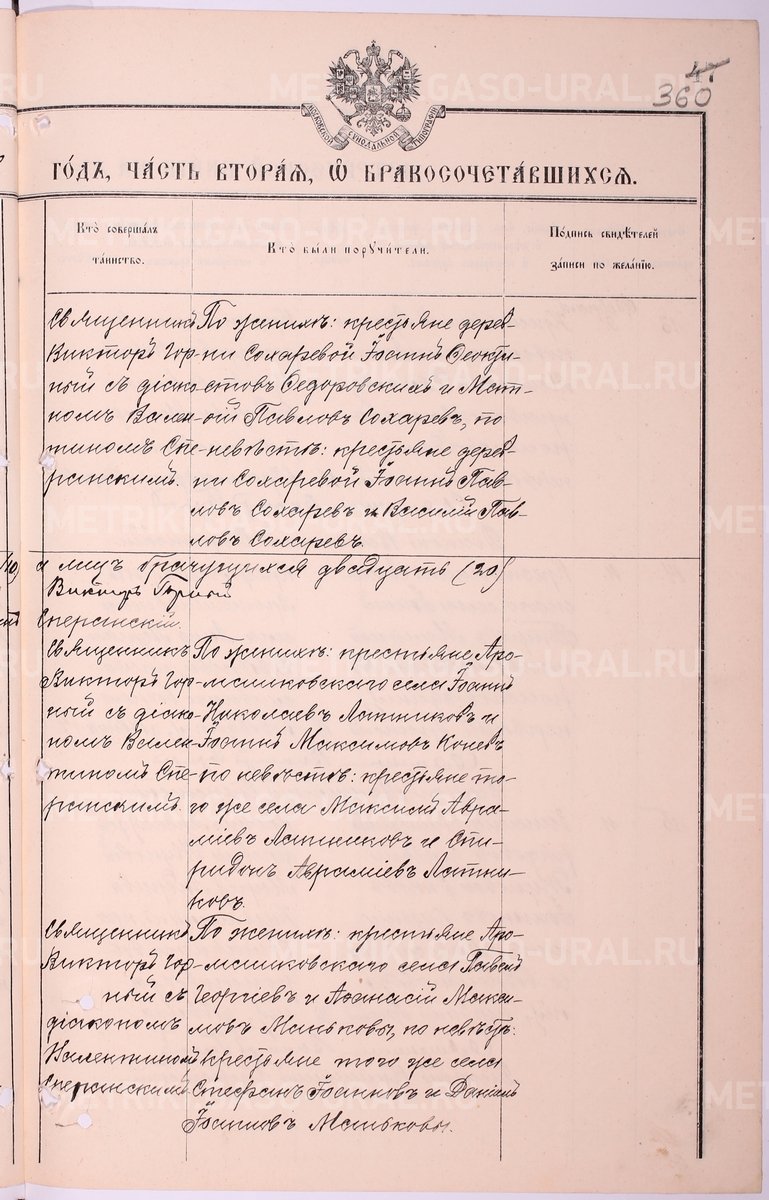 47
360
МОСКОВСКОЙ СѴНОДАЛЬНОЙ ТИПОГРАФІИ
ГО́ДЪ, ЧА́СТЬ ВТОРА́Я, Ѽ БРАКОСОЧЕТА́ВШИХСЯ.
Кто̀ соверша́лъ
та́инство.
Кто̀ бы́ли порꙋчи́тели.
По́дпись свидѣ́телей
за́писи по жела́нїю.
Священникъ
Викторъ Гор-
ный съ діако-
номъ Вален-
тиномъ Спе-
ранскимъ.
По женихѣ: крестьяне дерев-
ни Сохаревой Іоаннъ Ѳеокти-
стовъ Ѳедоровскихъ и Мат-
ѳій Павловъ Сохаревъ, по
невѣстѣ: крестьяне дерев-
ни Сохаревой Іоаннъ Пав-
ловъ Сохаревъ и Василій Пав-
ловъ Сохаревъ.
а лицъ брачущихся двадцать (20)
Викторъ Горный
Сперанскій.
Священникъ
Викторъ Гор-
ный съ діако-
номъ Вален-
тиномъ Спе-
ранскимъ.
По женихѣ: крестьяне Аро-
машковскаго села Іоаннъ
Николаевъ Латниковъ и
Іоаннъ Максимовъ Коневъ
по невѣстѣ: крестьяне то-
го же села Максимъ Авра-
міевъ Латниковъ и Спи-
ридонъ Авраміевъ Латни-
ковъ.
Священникъ
Викторъ Гор-
ный съ
діакономъ
Валентиномъ
Сперанскимъ
По женихѣ: крестьяне Аро-
машковскаго села Павелъ
Георгіевъ и Аѳанасій Макси-
мовъ Маньковы, по невѣстѣ:
крестьяне того же села
Стефанъ Іоанновъ и Даніилъ
Іоанновъ Маньковы.